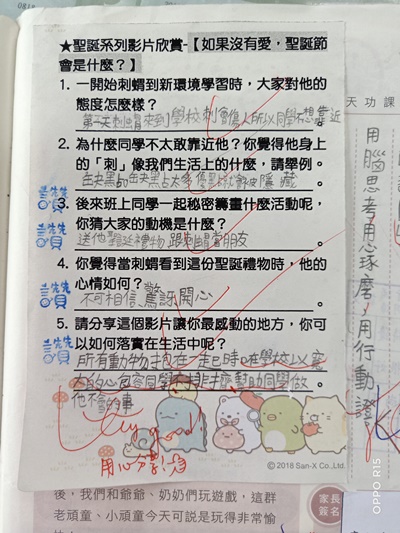 ★聖誕系列影片欣賞-【如果沒有愛，聖誕節
會是什麼？】
1. 一開始刺蝟到新環境學習時，大家對他的
態度怎麼樣？
第一天刺蝟來到學校刺會傷人所以同學不想靠近
2. 為什麼同學不太敢靠近他？你覺得他身上
的「刺」像我們生活上的什麼，請舉例。
缺點的缺點太多優點就會被隱藏
3. 後來班上同學一起秘密籌畫什麼活動呢，
你猜大家的動機是什麼？
送他聖誕禮物 跟刺蝟當朋友
4. 你覺得當刺蝟看到這份聖誕禮物時，他的
心情如何？
不可相信、驚訝開心
5. 請分享這個影片讓你最感動的地方，你可
以如何落實在生活中呢？
所有動物抱在一起時 在學校以寬
大的心包容同學 幫助同學做
他不會的事
Very good
©2018 San-X Co.,Ltd.
天功課
用腦思考用心琢磨，用行動證
後，我們和爺爺、奶奶們玩遊戲，這群
老頑童、小頑童今天可說是玩得非常愉
家長
簽名
OPPO R15